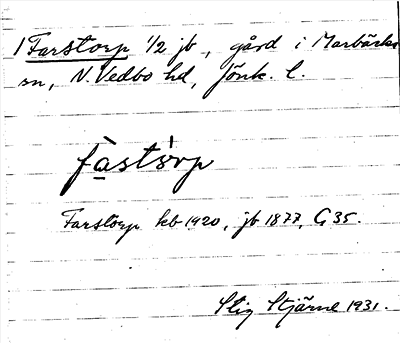 1 Farstorp 1/2 jb, gård i Marbäcks
sn, N. Vedbo hd, Jönk. l.
fàstórp
Farstorp kb 1920, jb 1877, G 35.
Stig Stjärne 1931.